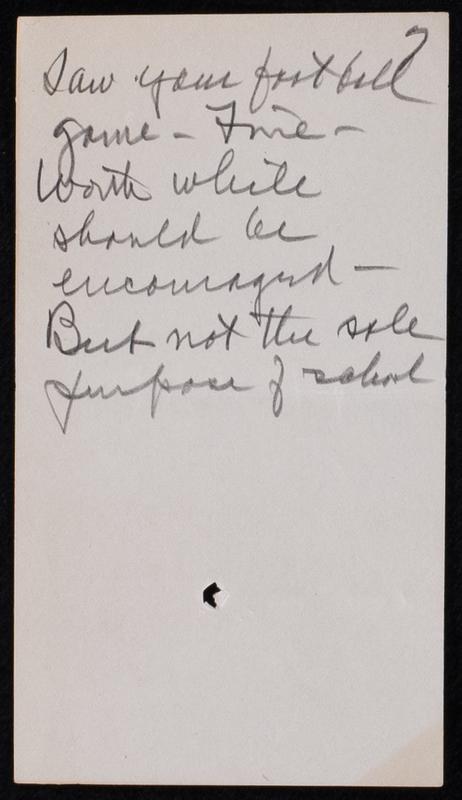 7
Saw your football
game – Fine –
Worth while
should be
encouraged –
But not the sole
purpose of school